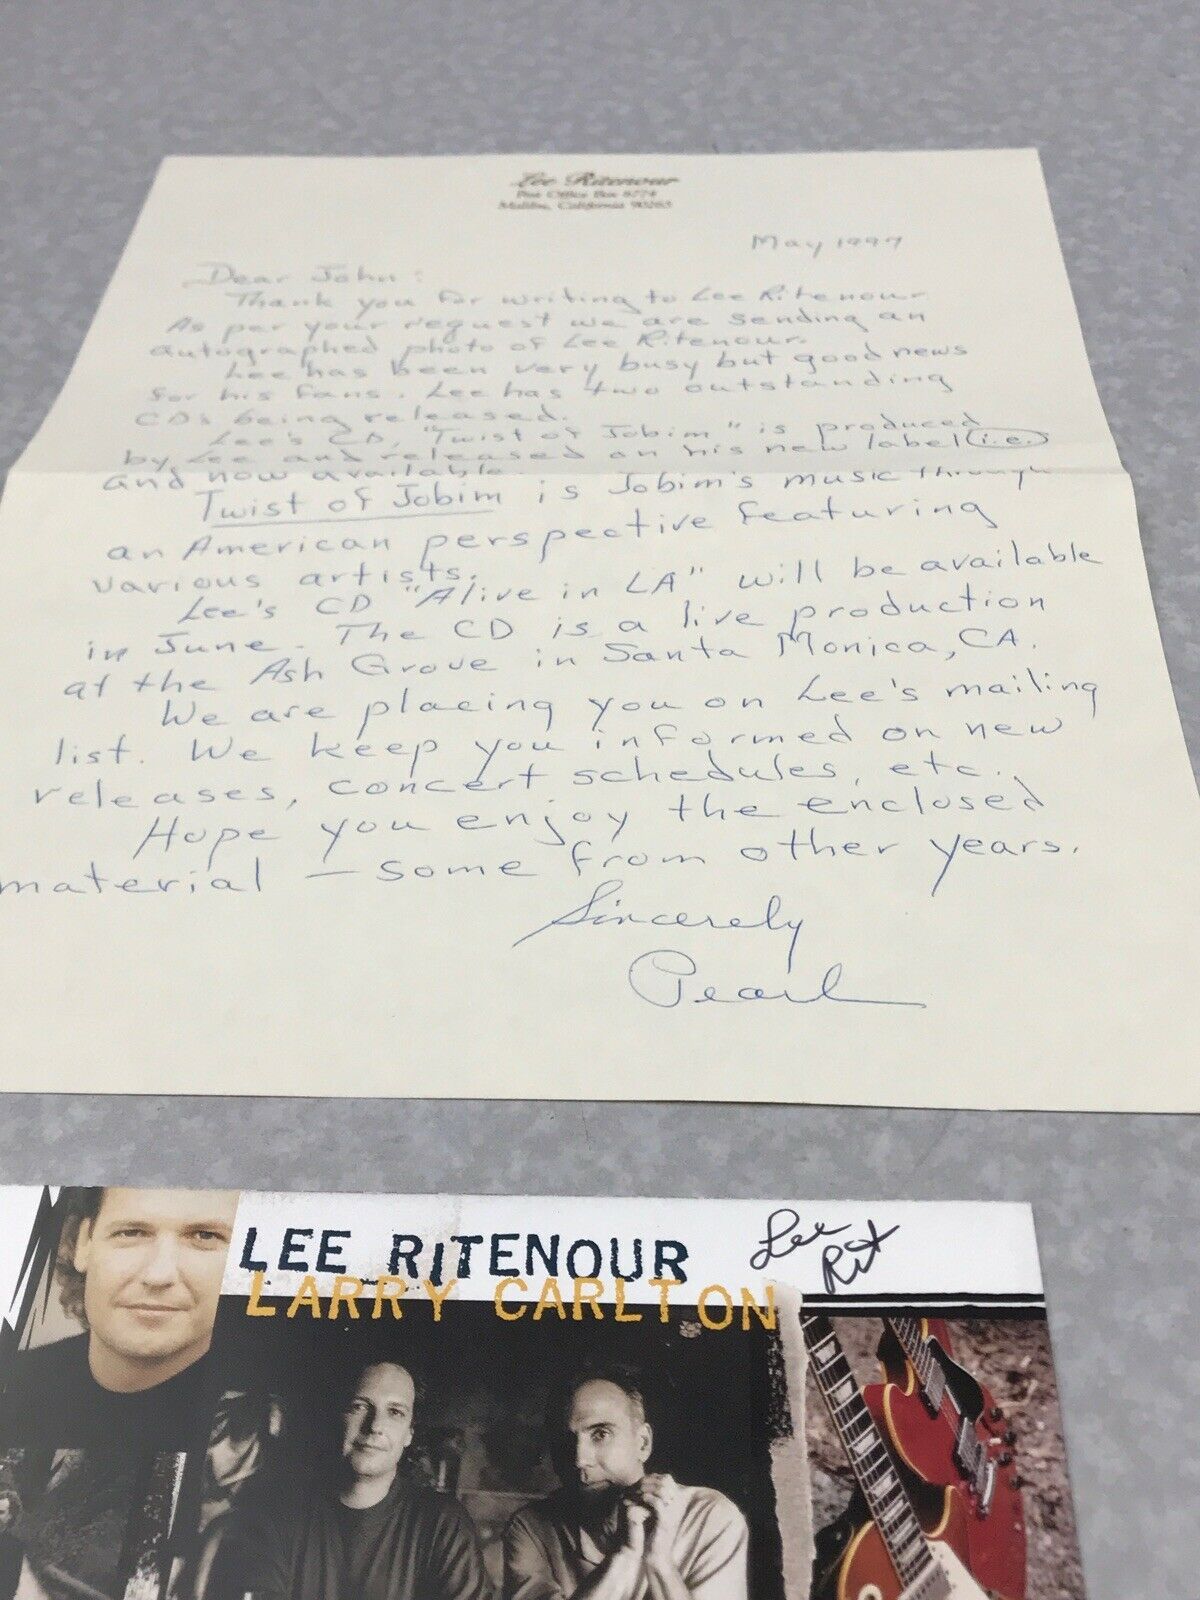 Lee Ritenour
Post Office Box 6774
Malibu, California 90265
May 1997
Dear John:
Thank you for writing to Lee Ritenour
As per your request we are sending an
autographed photo of Lee Ritenour.
Lee has been very busy but good news
for his fans. Lee has two outstanding
CDs being released.
Lee's CD, "Twist of Jobim" is produced
by Lee and released on his new label i.e.
and now available.
Twist of Jobim is Jobim's music through
an American perspective featuring
various artists.
Lee's CD "Alive in LA" will be available
in June. The CD is a live production
at the Ash Grove in Santa Monica, CA.
We are placing you on Lee's mailing
list. We keep you informed on new
releases, concert schedules, etc.
Hope you enjoy the enclosed
material — some from other years.
Sincerely
Pearl
LEE RITENOUR
LARRY CARLTON
Lee
Rit